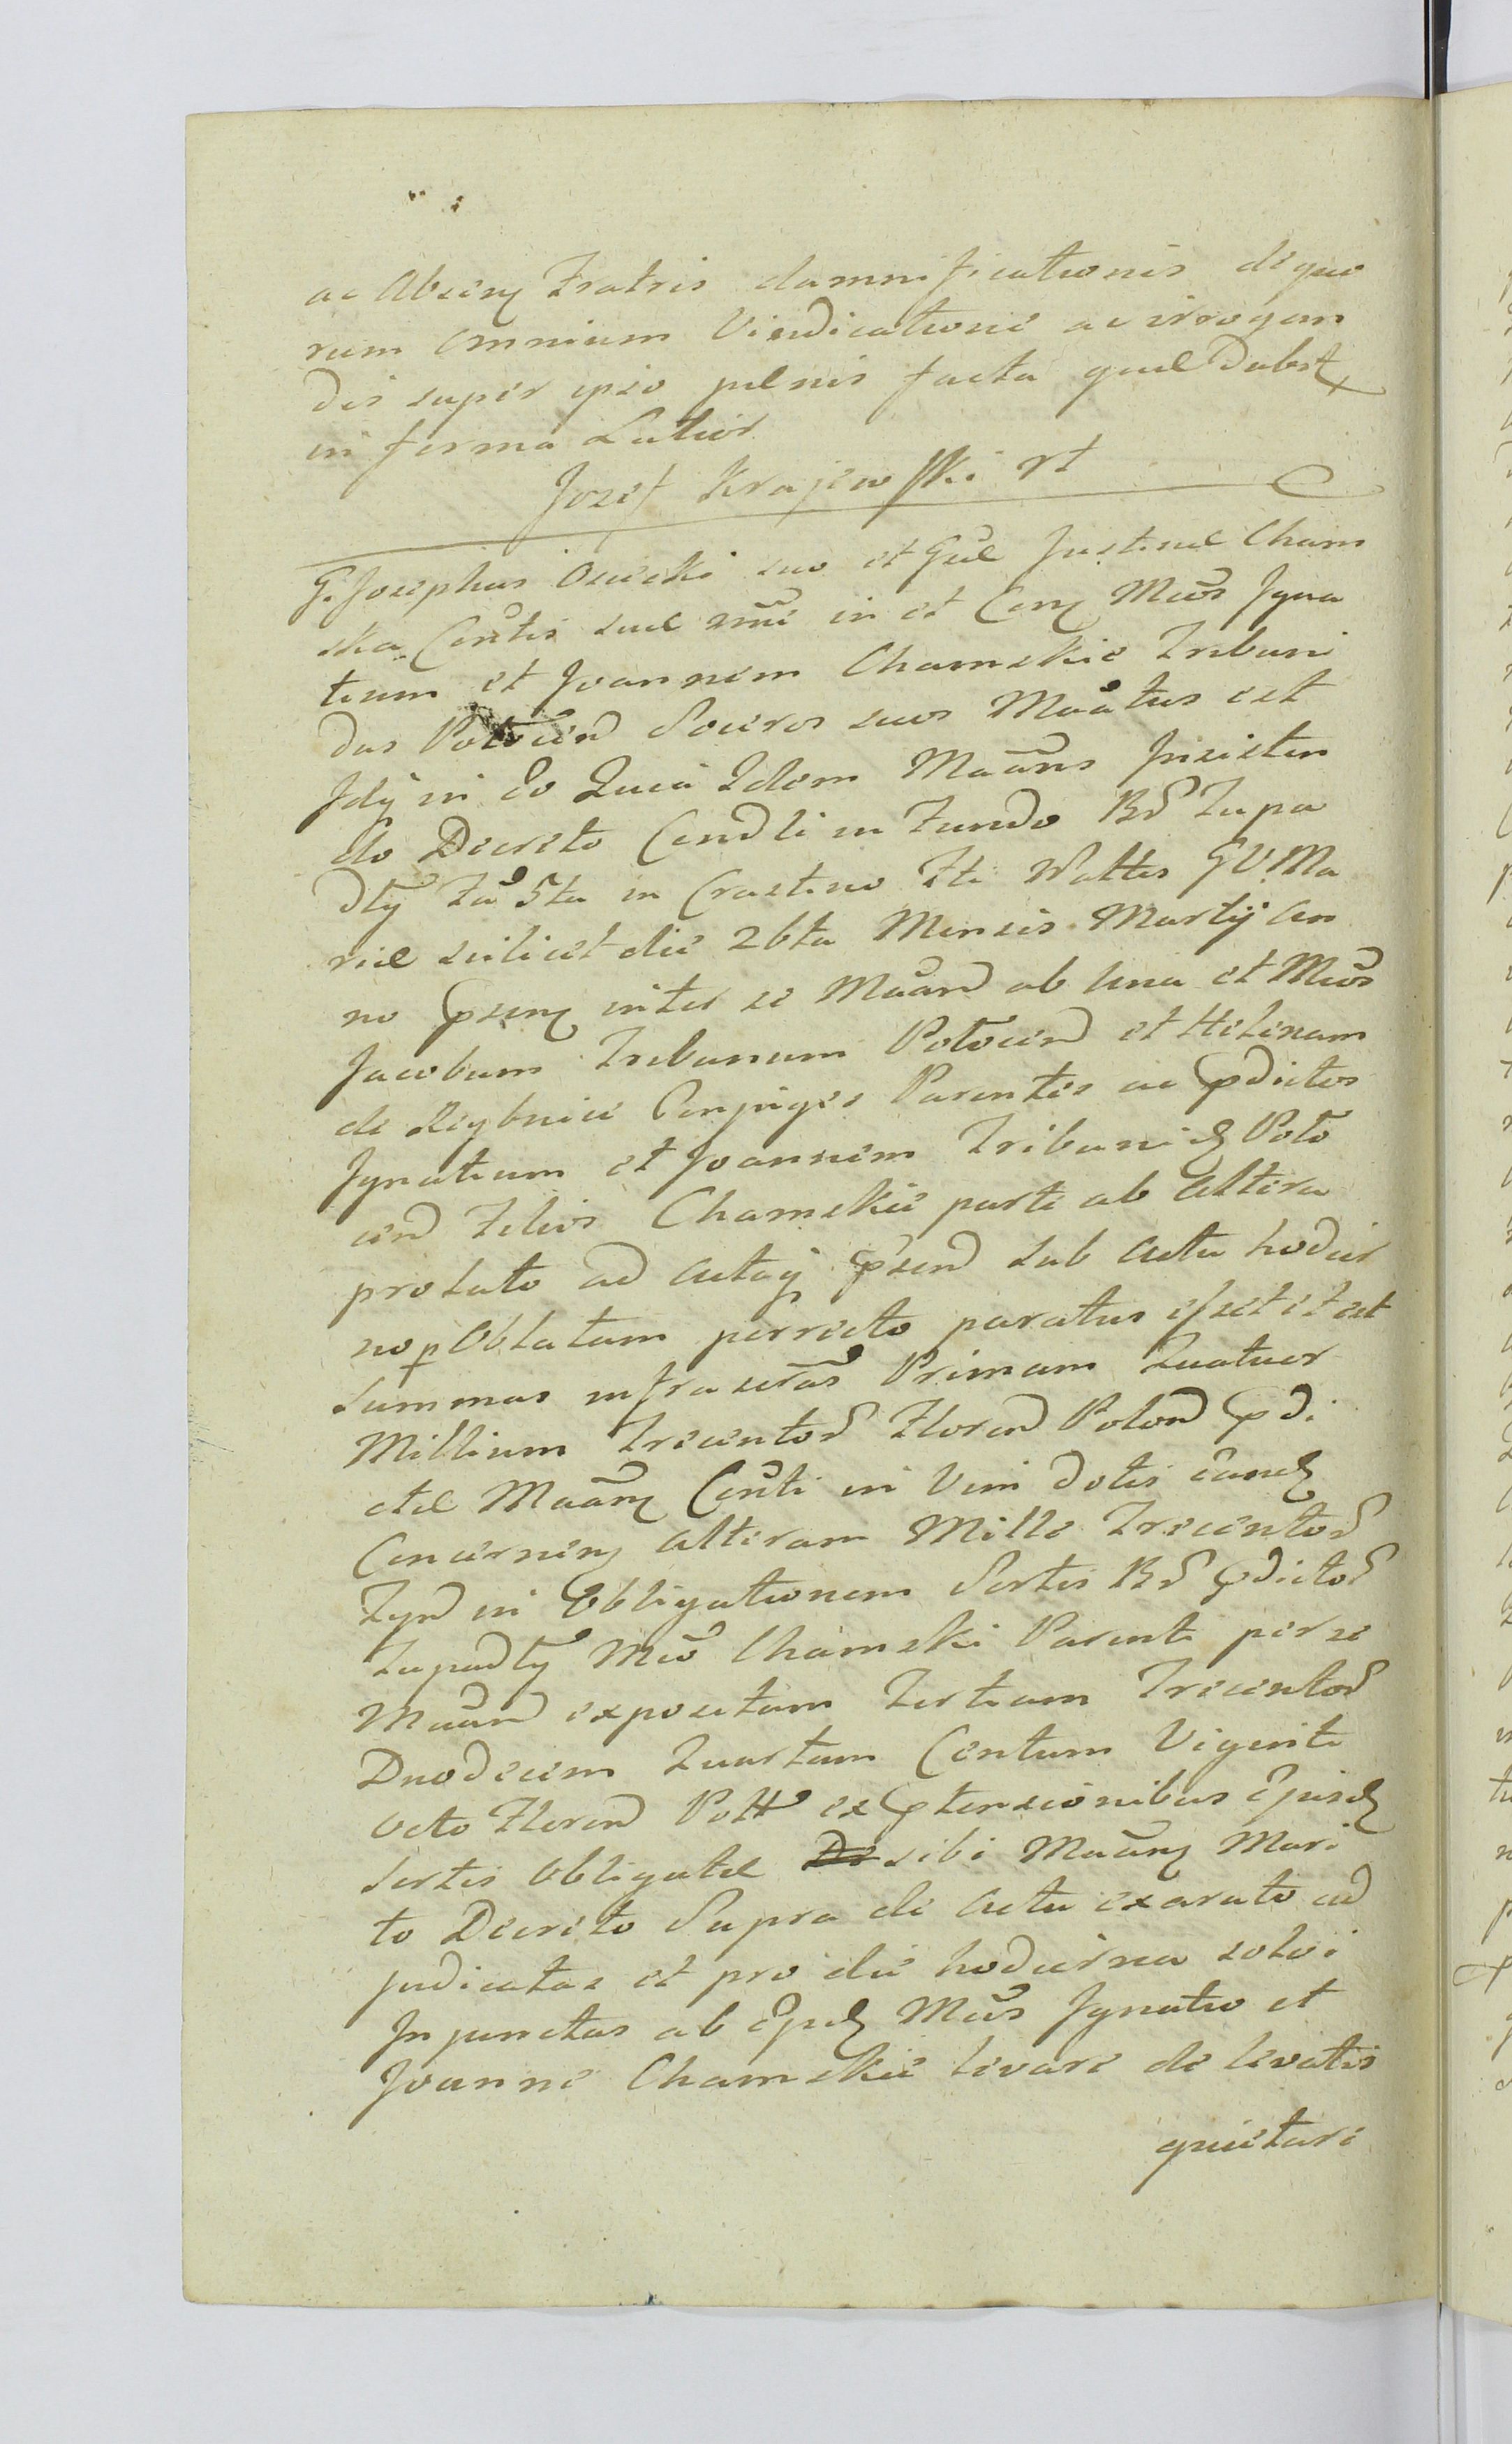 ac Absenq Fratris damnificationis de quo
rum omnium Vindicatione ac irrogan
dis super ipso pænis facta quæ Dabit
in forma Latior
Jozef Krajewski rt
G. Josephus Osiecki suo et Gsæ Justinæ Cham
ska Consortis suæ nñe in et Conq Mcos Igna
tium et Joannem Chamskie Tribuni
das Plocien Soceros suos Maatus est
Idq in Eo Quia Idem Maans Insisten
do Decreto Condli in Fundo Br Zupa
dły Fria 5ta in Crastino Fti Nattis GVMa
riæ scilicet die 26ta Mensis Martij an
no pseng inter se Maan ab una et Mcos
Jacobum Tribunum Plocien et Helenam
de Rzybnice Conjuges Parentes ac pdictos
Ignatium et Joannem Tribuni Plo
cen Filios Chamskie parte ab altera
prolato ad actaq psen sub actu hodier
no p Oblatam perrecto paratus esset et est
Summas infrascras Primam Quatuor
Millium Trecentor Floren Polon pdi
ctæ Maanq Consti in Vim dotis eandq
Concernenq alteram Mille Trecentor
Fpn in Obligationem Sortis Br pdictor
Zupadły Mco Chamski Parenti per se
Maan expositam Tertiam Trecentor
Duodecim Quartam Centum Viginti
octo Floren Poll ex ptensionibus Ejusd
Sortis Obligatæ De sibi Maanq Mari
to Decreto Supra de actu exarato ad
judicatas et pro die hodierna solvi
Injunctas ab Ipsq Mcis Ignatio et
Joanne Chamskie levare de levatis
quietare